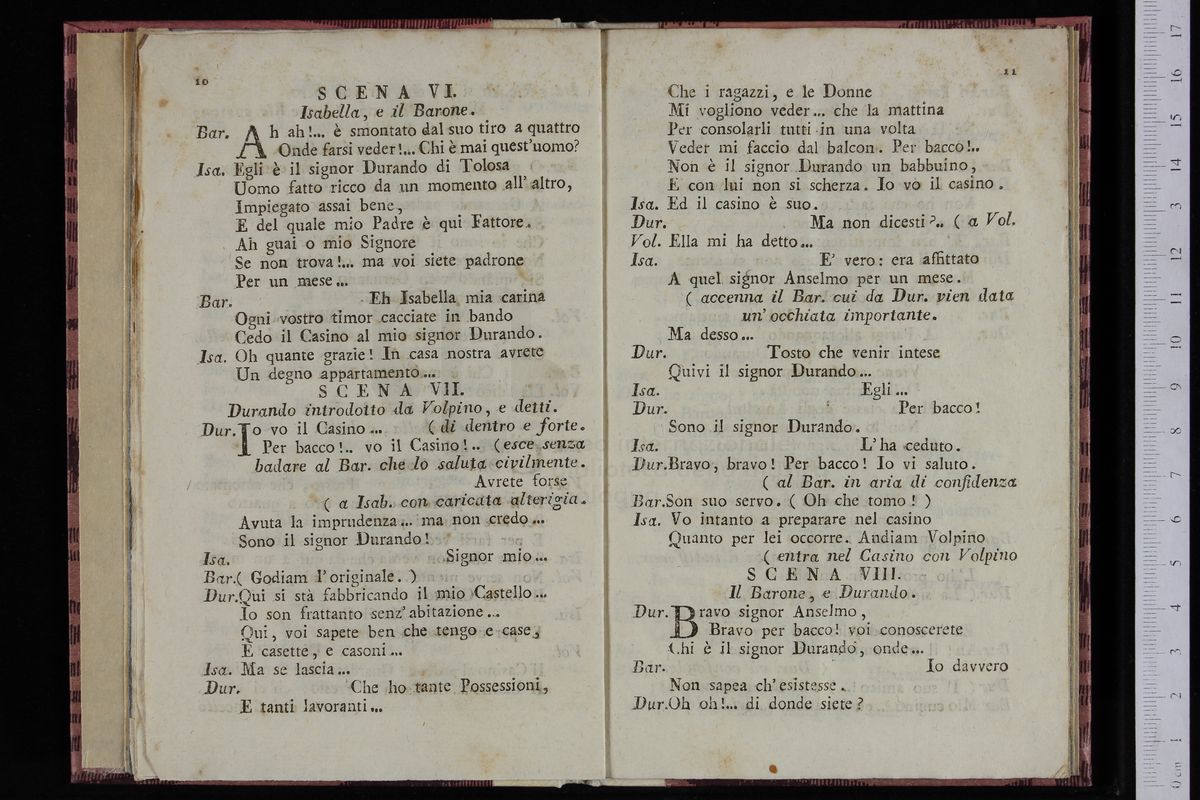 10
SCENA VI.
Isabella, e il Barone.
Bar. Ah ah!... è smontato dal suo tiro a quattro
Onde farsi veder!... Chi è mai quest'uomo?
Isa. Egli è il signor Durando di Tolosa
Uomo fatto ricco da un momento all'altro,
Impiegato assai bene,
E del quale mio Padre è qui Fattore.
Ah guai o mio Signore
Se non trova!... ma voi siete padrone
Per un mese...
Bar. Eh Isabella mia carina
Ogni vostro timor cacciate in bando
Cedo il Casino al mio signor Durando.
Isa. Oh quante grazie! In casa nostra avrete
Un degno appartamento...
SCENA VII.
Durando introdotto da Volpino, e detti.
Dur. Io vo il Casino... (di dentro e forte.
Per bacco!.. vo il Casino!.. (esce senza
badare al Bar. che lo saluta civilmente.
Avrete forse
( a Isab. con caricata alterigia.
Avuta la imprudenza... ma non credo...
Sono il signor Durando!
Isa. Signor mio...
Bar. ( Godiam l'originale. )
Dur. Qui si stà fabbricando il mio Castello...
Io son frattanto senz'abitazione...
Qui, voi sapete ben che tengo e case,
E casette, e casoni...
Isa. Ma se lascia...
Dur. Che ho tante Possessioni,
E tanti lavoranti...
11
Che i ragazzi, e le Donne
Mi vogliono veder... che la mattina
Per consolarli tutti in una volta
Veder mi faccio dal balcon. Per bacco!..
Non è il signor Durando un babbuino,
E con lui non si scherza. Io vo il casino.
Isa. Ed il casino è suo.
Dur. Ma non dicesti?.. ( a Vol.
Vol. Ella mi ha detto...
Isa. E' vero: era affittato
A quel signor Anselmo per un mese.
( accenna il Bar. cui da Dur. vien data
un'occhiata importante.
Ma desso...
Dur. Tosto che venir intese
Quivi il signor Durando...
Isa. Egli...
Dur. Per bacco!
Sono il signor Durando.
Isa. L'ha ceduto.
Dur. Bravo, bravo! Per bacco! Io vi saluto.
( al Bar. in aria di confidenza
Bar. Son suo servo. ( Oh che tomo! )
Isa. Vo intanto a preparare nel casino
Quanto per lei occorre. Andiam Volpino
( entra nel Casino con Volpino
SCENA VIII.
Il Barone, e Durando.
Dur. Bravo signor Anselmo,
Bravo per bacco! voi conoscerete
Chi è il signor Durando, onde...
Bar. Io davvero
Non sapea ch'esistesse.
Dur. Oh oh!... di donde siete?
0 cm 1 2 3 4 5 6 7 8 9 10 11 12 13 14 15 16 17